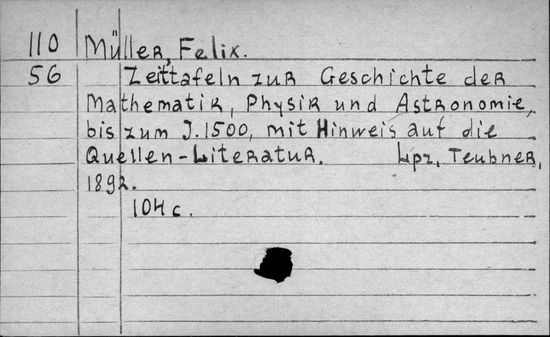 110 Müller, Felix.
56 Zeittafeln zur Geschichte der
Mathematik, Physik und Astronomie,
bis zum J. 1500, mit Hinweis auf die
Quellen-Literatur. Lpz, Teubner,
1892.
104 c.